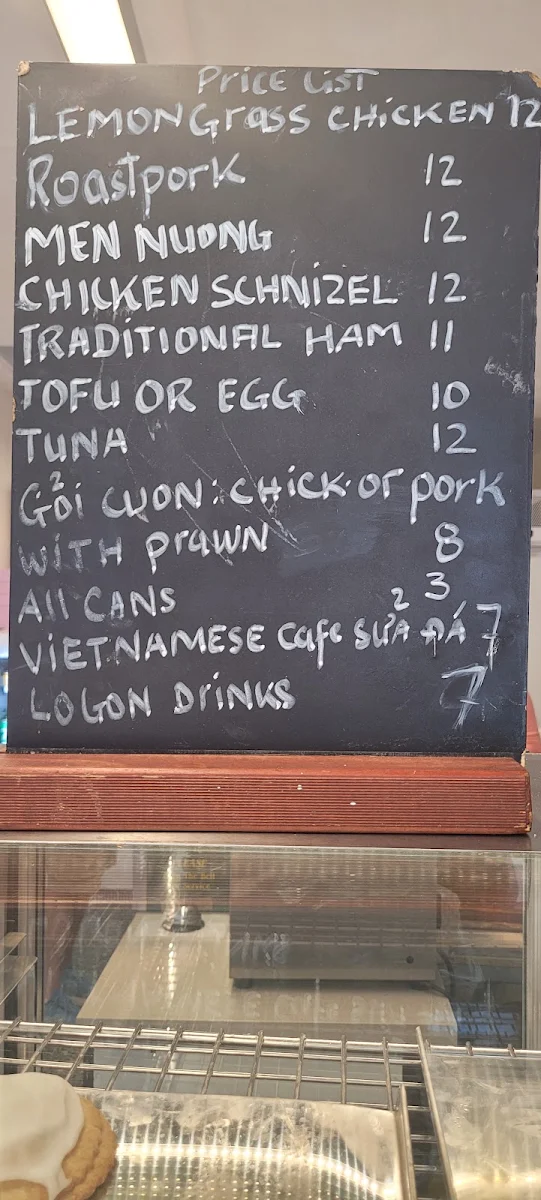 Price List
LEMONGrass CHICKEN 12
Roastpork 12
MEN NUONG 12
CHICKEN SCHNIZEL 12
TRADITIONAL HAM 11
TOFU OR EGG 10
TUNA 12
Gỏi CUON: CHICK. or pork
WITH prawN 8
All CANS 3
VIETNAMESE Cafe SỬA ĐÁ 7
LOGON DriNKS 7